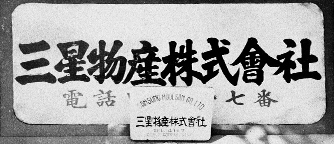 三星物産株式會社
電話 七番
SAMSUNG MOOLSAN CO. LTD.
三星物産株式會社